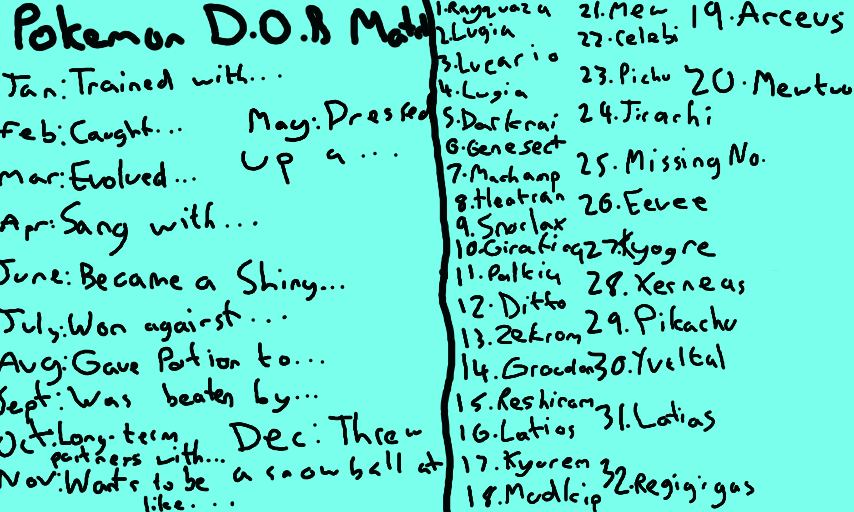 Pokemon D.O.B Match
Jan:Trained with...
Feb:Caught...
Mar:Evolved...
Apr:Sang with...
May:Dressed
up a ...
June:Became a Shiny...
July:Won against...
Aug:Gave Potion to...
Sept:Was beaten by...
Oct:Long-term
partners with...
Nov:Wants to be
like....
Dec:Threw
a snowball at
1.Rayquaza
2.Lugia
3.Lucario
4.Lugia
5.Darkrai
6.Genesect
7.Machamp
8.Heatran
9.Snorlax
10.Giratina
11.Palkia
12.Ditto
13.Zekrom
14.Groudon
15.Reshiram
16.Latios
17.Kyurem
18.Mudkip
19.Arceus
20.Mewtwo
21.Mew
22.Celebi
23.Pichu
24.Jirachi
25.Missing No.
26.Eevee
27.Kyogre
28.Xerneas
29.Pikachu
30.Yveltal
31.Latias
32.Regigigas